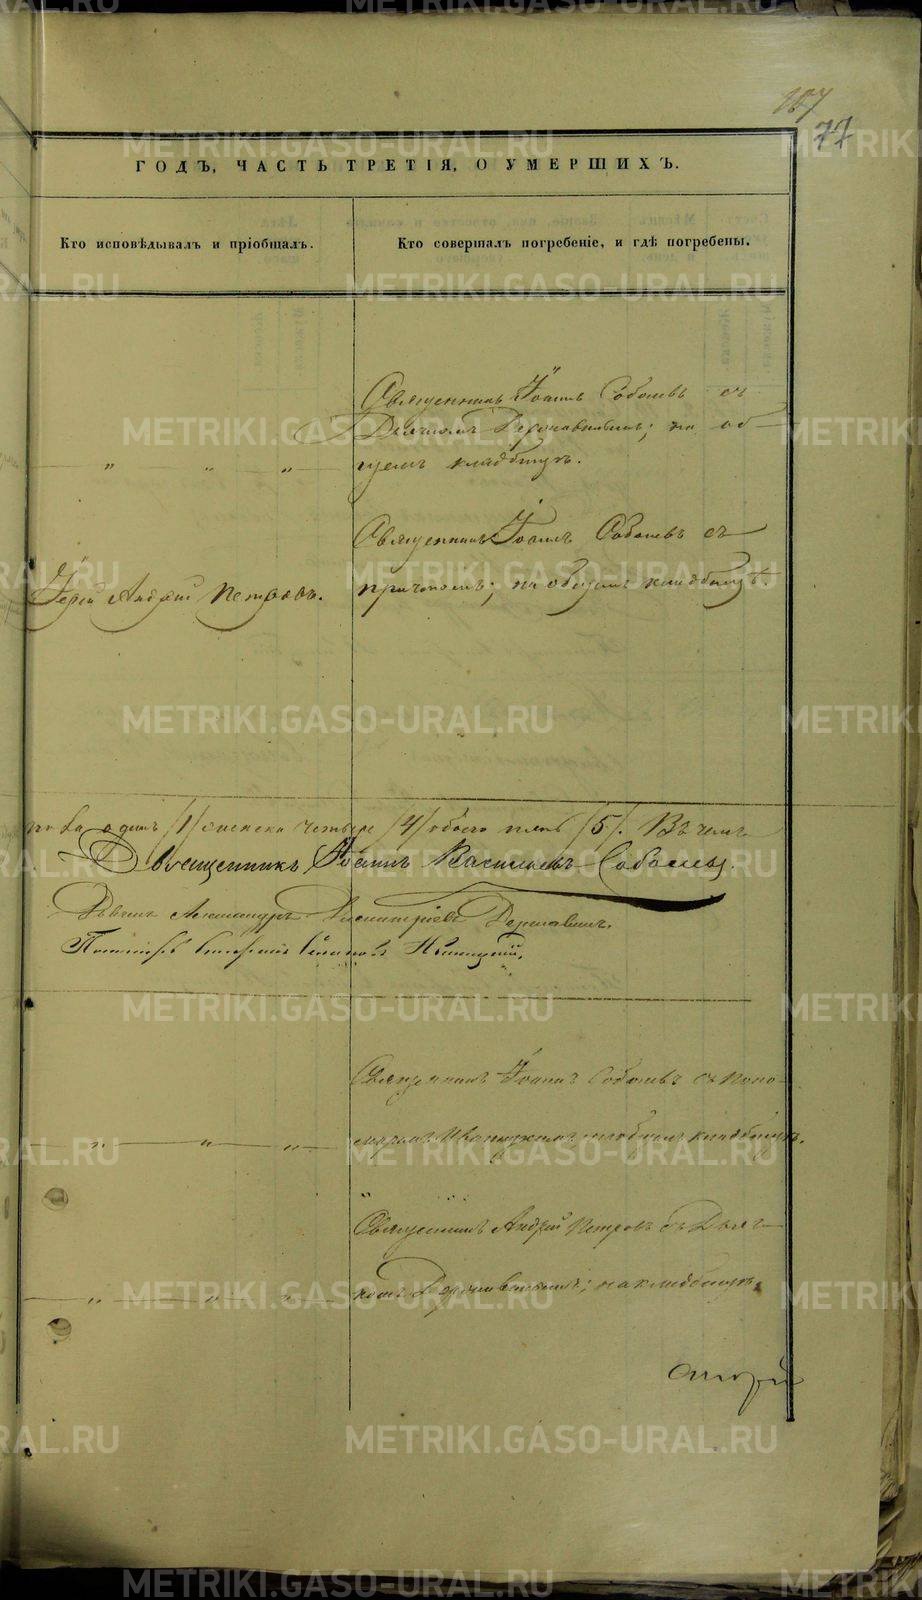 107
77
ГОДЪ, ЧАСТЬ ТРЕТІЯ, О УМЕРШИХЪ.
Кто исповѣдывалъ и пріобщалъ.
Кто совершалъ погребеніе, и гдѣ погребены.
Священникъ Іоаннъ Соболевъ съ
Дьячкомъ Державинымъ; на об-
щемъ кладбищѣ.
Священникъ Іоаннъ Соболевъ съ
причтомъ; на общемъ кладбищѣ.
Іерей Андрей Петровъ.
одинъ /1/ женска четыре /4/ обоего пять /5/. Въ чемъ
Священникъ Іоаннъ Васильевъ Соболевъ.
Дьячекъ Александръ Димитріевъ Державинъ.
Пономарь
Священникъ Іоаннъ Соболевъ съ Поно-
маремъ общемъ кладбищѣ.
Священникъ Андрей Петровъ съ Дьяч-
комъ Державинымъ; на кладбищѣ.
METRIKI.GASO-URAL.RU